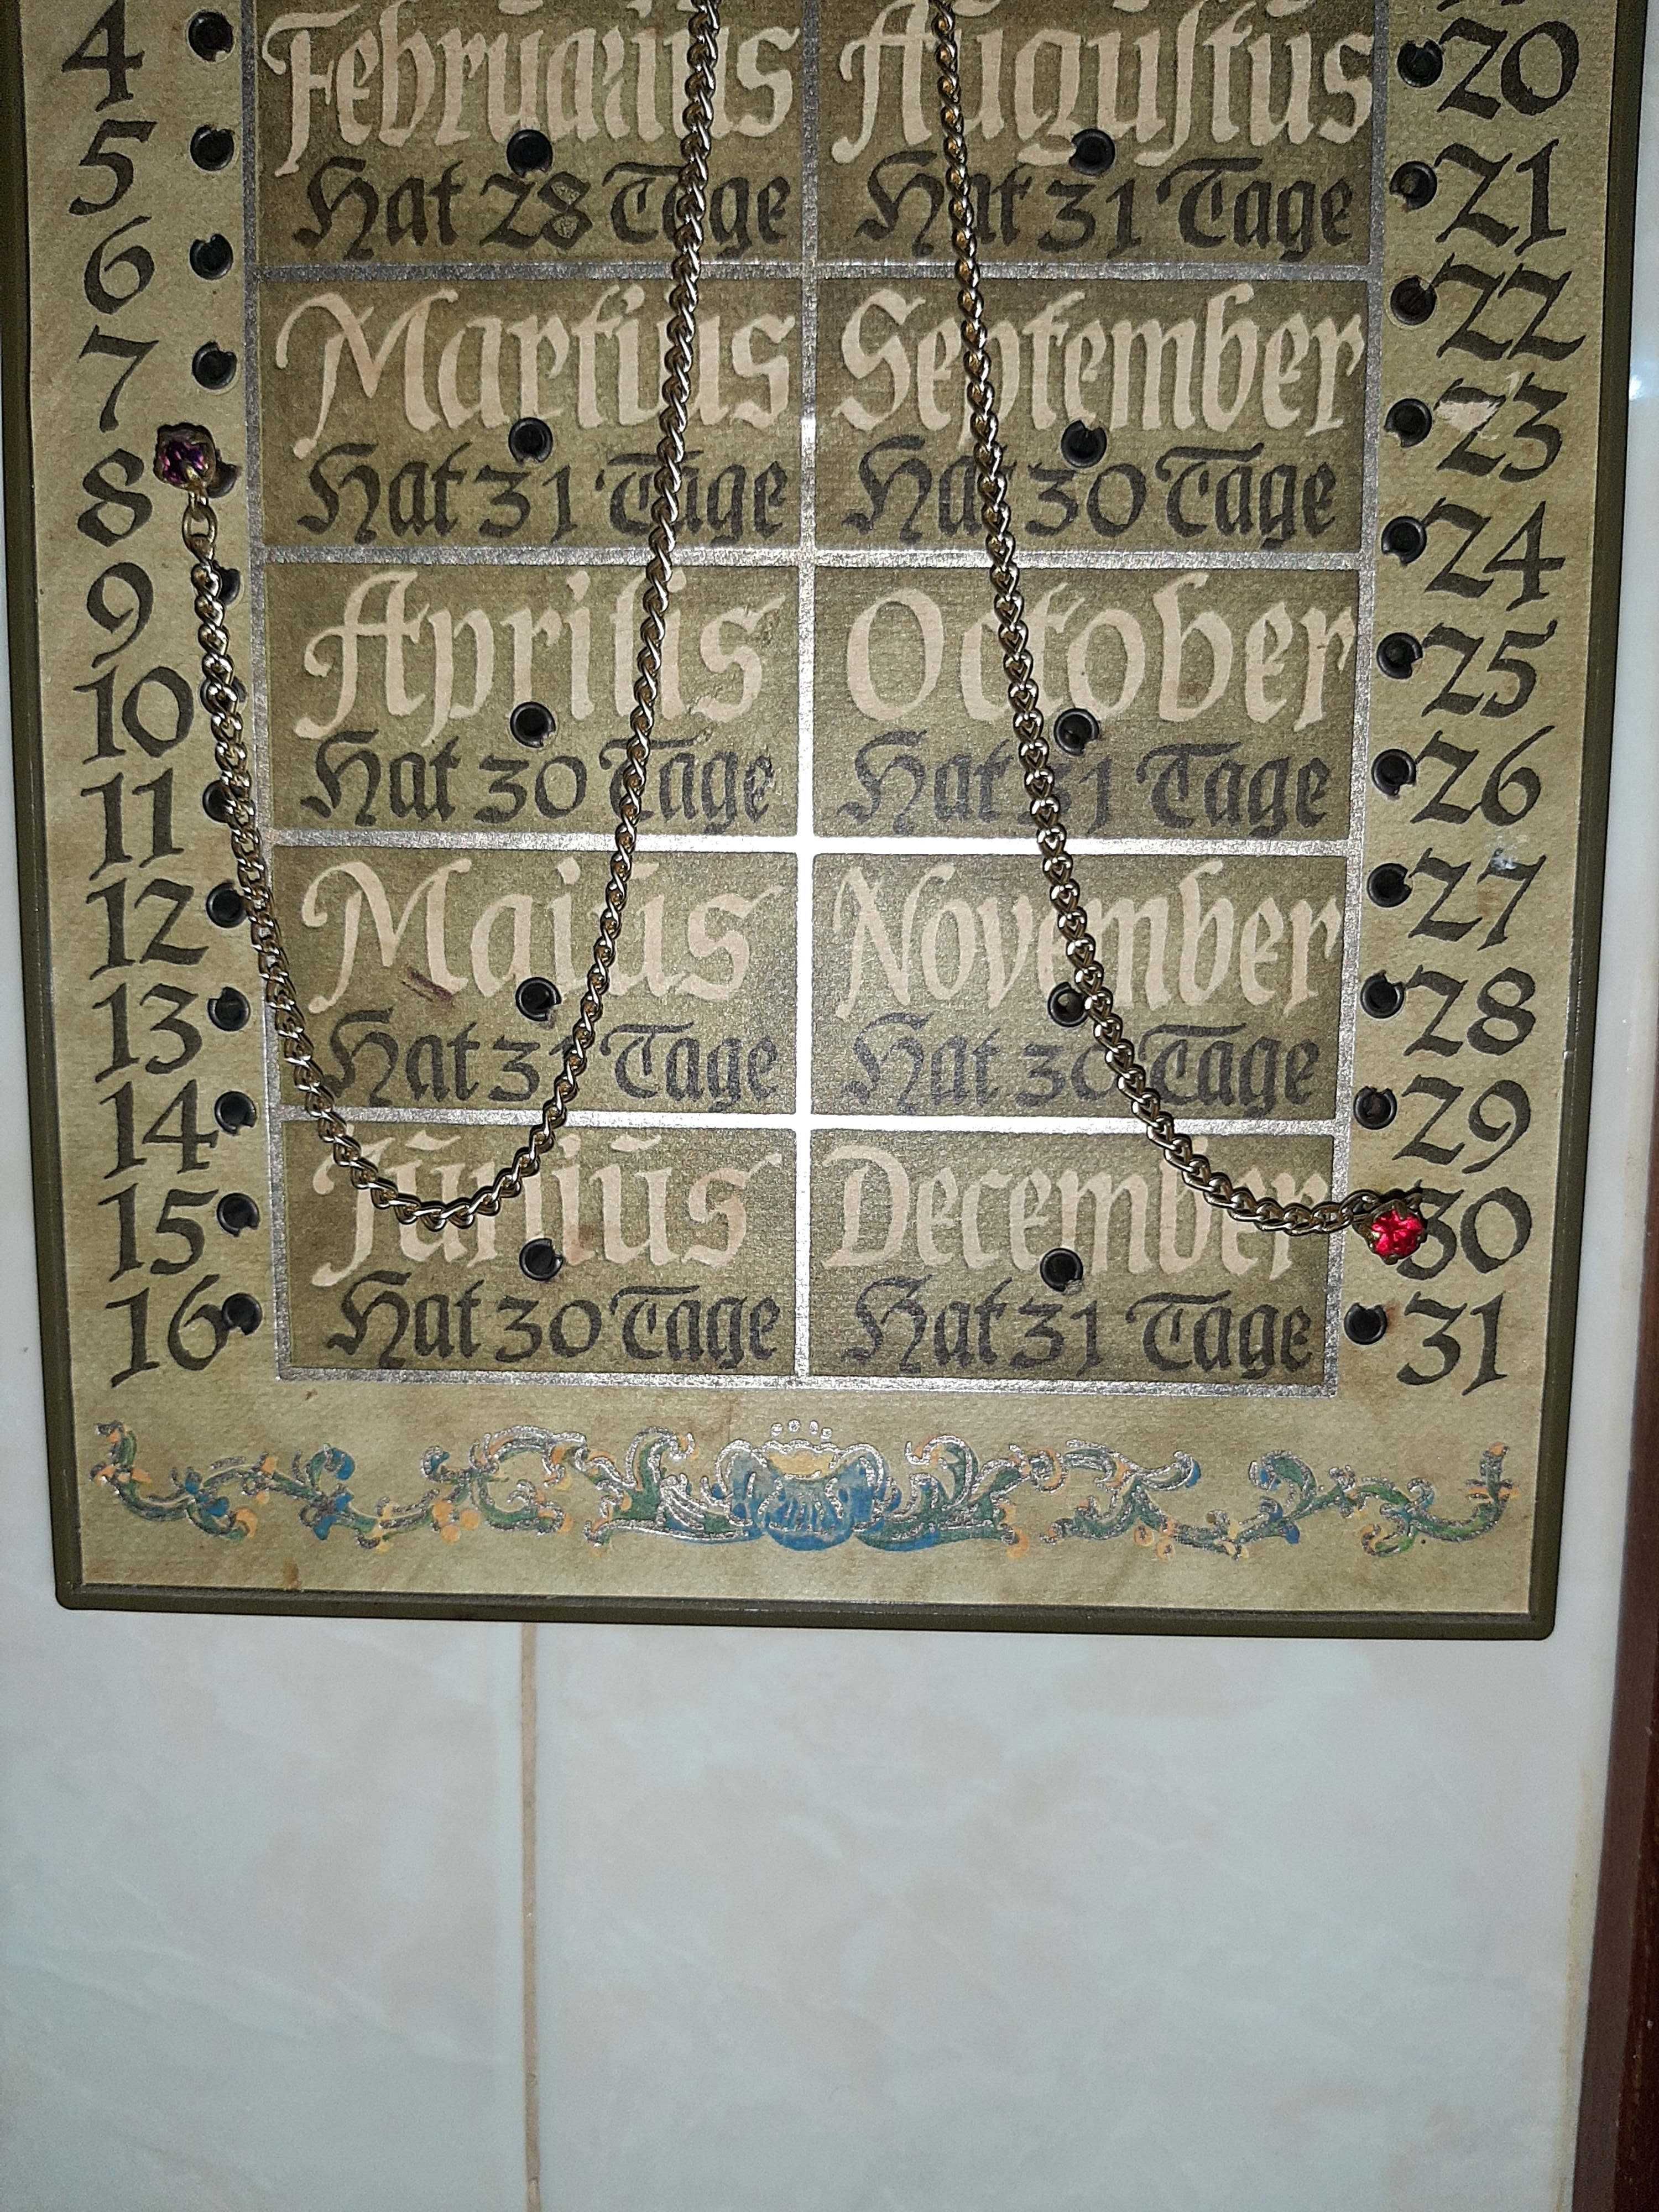 4
5
6
7
8
9
10
11
12
13
14
15
16
Februarius
Hat 28 Tage
Martius
Hat 31 Tage
Aprilis
Hat 30 Tage
Maiũs
Hat 31 Tage
Jũniũs
Hat 30 Tage
Auguſtus
Hat 31 Tage
September
Hat 30 Tage
October
Hat 31 Tage
November
Hat 30 Tage
December
Hat 31 Tage
20
21
22
23
24
25
26
27
28
29
30
31